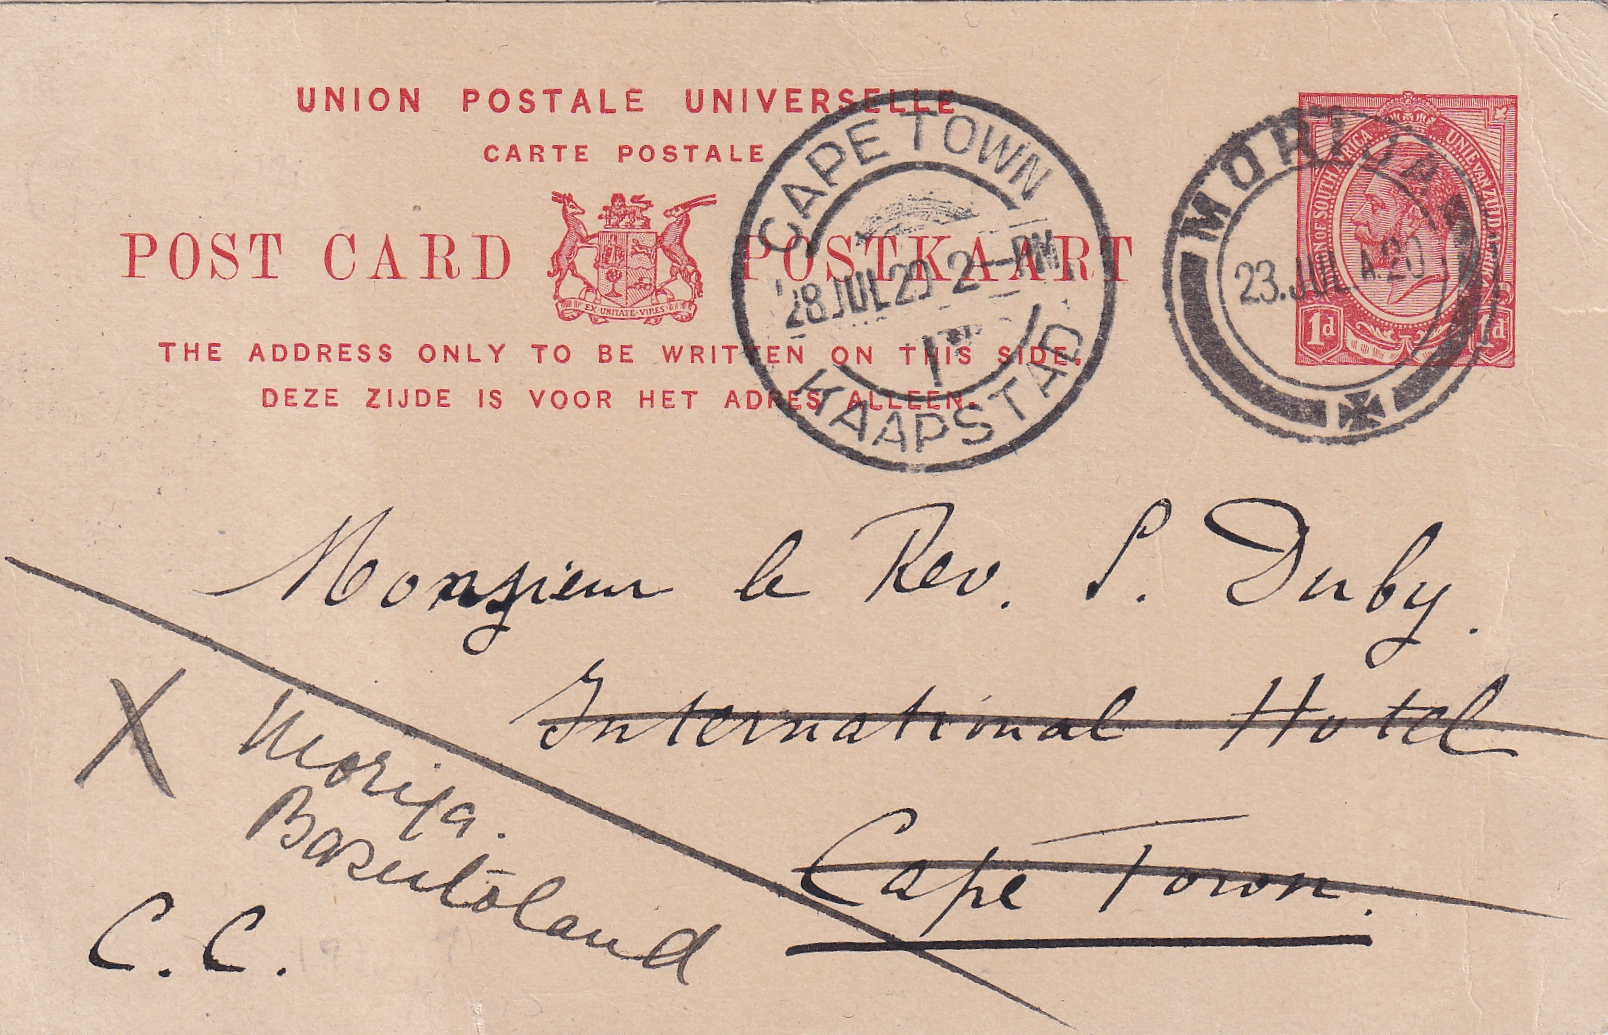 UNION POSTALE UNIVERSELLE
CARTE POSTALE
POST CARD POSTKAART
EX UNITATE VIRES
THE ADDRESS ONLY TO BE WRITTEN ON THIS SIDE.
DEZE ZIJDE IS VOOR HET ADRES ALLEEN.
CAPE TOWN
28 JUL 20 2-PM
KAAPSTAD
MORIJA
23.JUL A.20
UNIE VAN ZUID AFRIKA
UNION OF SOUTH AFRICA
1d 1d
Monsieur le Rev. S. Duby.
International Hotel
Cape Town.
Morija.
Basutoland
C.C.